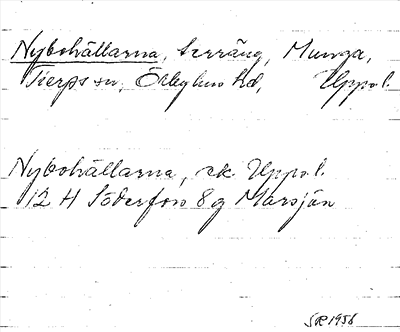 Nybohällarna, terräng, Munga,
Tierps sn, Örbyhus hd, Uppl.
Nybohällarna, ek. Uppl.
12 H Söderfors 8 g Marsjön
SR 1956